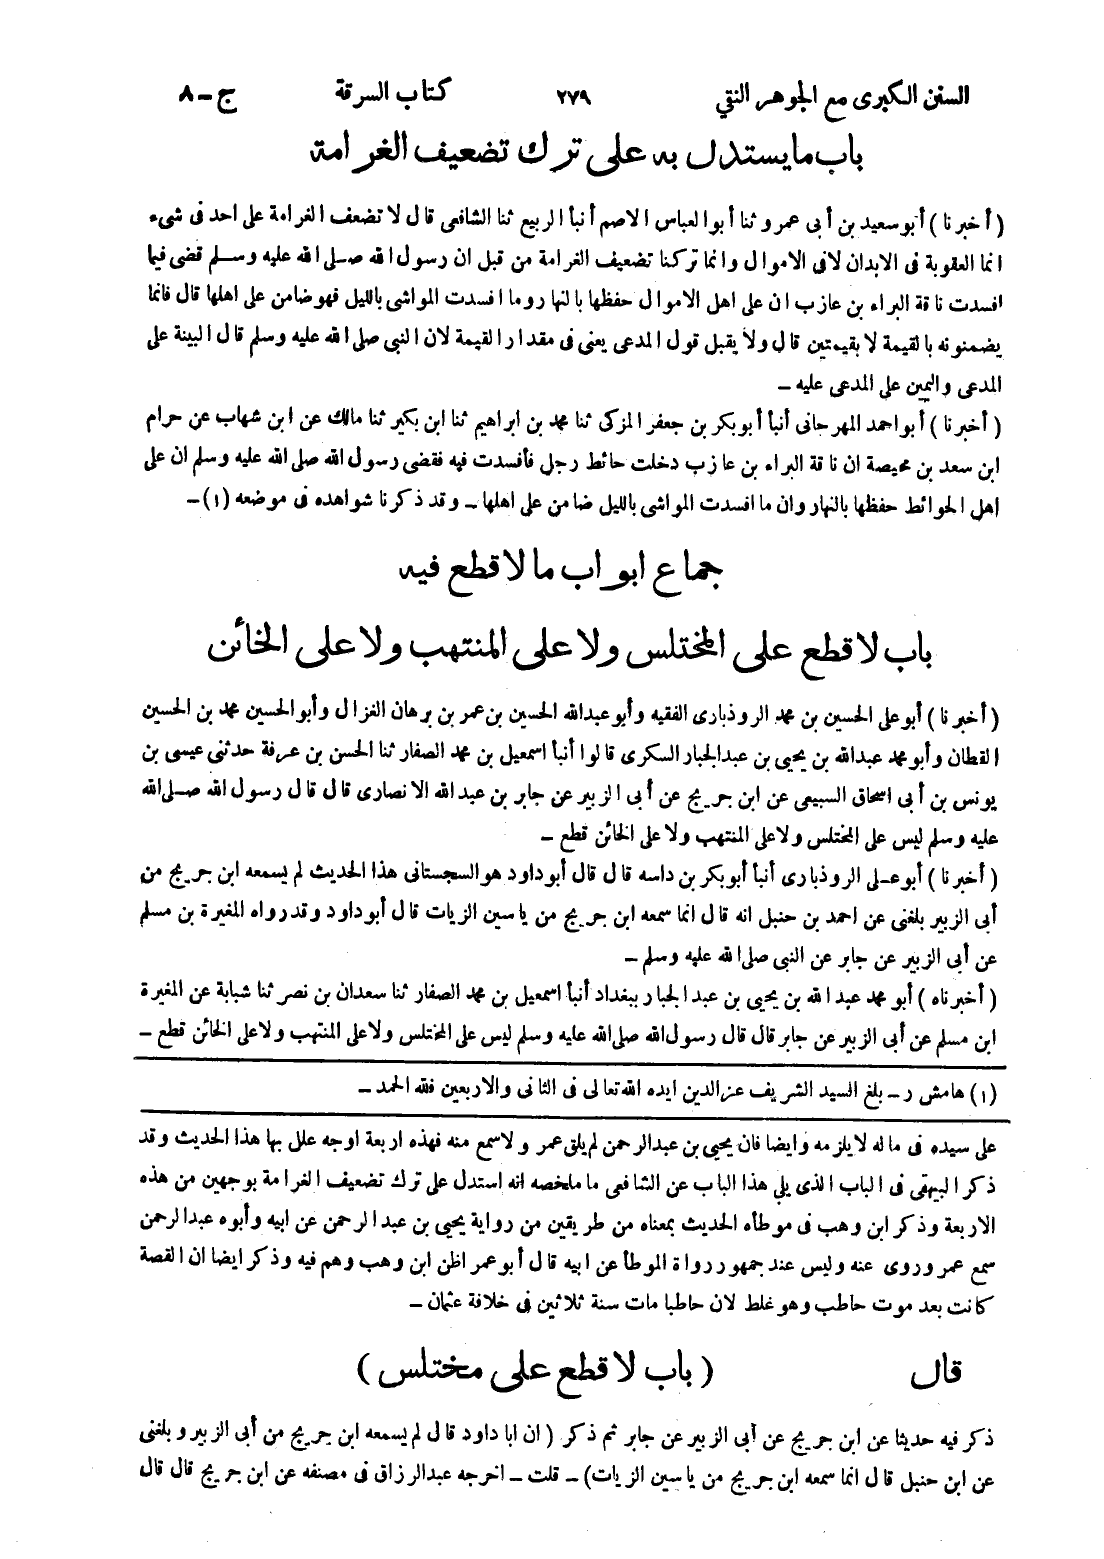 السنن الكبرى مع الجوهر النقي ٢٧٩ كتاب السرقة ج - ٨
باب ما يستدل به على ترك تضعيف الغرامة
( أخبرنا ) أبو سعيد بن أبى عمرو ثنا أبو العباس الاصم أنبأ الربيع ثنا الشافعى قال لا تضعف الغرامة على احد فى شىء
انما العقوبة فى الابدان لا فى الاموال وانما تركنا تضعيف الغرامة من قبل ان رسول الله صلى الله عليه وسلم قضى فيما
افسدت ناقة البراء بن عازب ان على اهل الاموال حفظها بالنهار وما افسدت المواشى بالليل فهو ضامن على اهلها قال فانما
يضمنونه بالقيمة لا بقيمتين قال ولا يقبل قول المدعى يعنى فى مقدار القيمة لان النبى صلى الله عليه وسلم قال البينة على
المدعى واليمين على المدعى عليه -
( أخبرنا ) أبو احمد المهرجانى أنبأ أبو بكر بن جعفر المزكى ثنا محمد بن ابراهيم ثنا ابن بكير ثنا مالك عن ابن شهاب عن حرام
ابن سعد بن محيصة ان ناقة البراء بن عازب دخلت حائط رجل فأفسدت فيه فقضى رسول الله صلى الله عليه وسلم ان على
اهل الحوائط حفظها بالنهار وان ما افسدت المواشى بالليل ضامن على اهلها - وقد ذكرنا شواهده فى موضعه (١) -
جماع ابواب ما لا قطع فيه
باب لا قطع على المختلس ولا على المنتهب ولا على الخائن
( أخبرنا ) أبو على الحسين بن محمد الروذبارى الفقيه وأبو عبدالله الحسين بن عمر بن برهان الغزال وأبو الحسين محمد بن الحسين
القطان وأبو محمد عبدالله بن يحيى بن عبدالجبار السكرى قالوا أنبأ اسمعيل بن محمد الصفار ثنا الحسن بن عرفة حدثنى عيسى بن
يونس بن أبى اسحاق السبيعى عن ابن جريج عن أبى الزبير عن جابر بن عبد الله الانصارى قال قال رسول الله صلى الله
عليه وسلم ليس على المختلس ولا على المنتهب ولا على الخائن قطع -
( أخبرنا ) أبو على الروذبارى أنبأ أبو بكر بن داسه قال قال أبو داود هو السجستانى هذا الحديث لم يسمعه ابن جريج من
أبى الزبير بلغنى عن احمد بن حنبل انه قال انما سمعه ابن جريج من ياسين الزيات قال أبو داود وقد رواه المغيرة بن مسلم
عن أبى الزبير عن جابر عن النبى صلى الله عليه وسلم -
( أخبرناه ) أبو محمد عبد الله بن يحيى بن عبد الجبار ببغداد أنبأ اسمعيل بن محمد الصفار ثنا سعدان بن نصر ثنا شبابة عن المغيرة
ابن مسلم عن أبى الزبير عن جابر قال قال رسول الله صلى الله عليه وسلم ليس على المختلس ولا على المنتهب ولا على الخائن قطع -
(١) هامش ر - بلغ السيد الشريف عز الدين ايده الله تعالى فى الثانى والاربعين فلله الحمد -
على سيده فى ماله لا يلزمه وايضا فان يحيى بن عبدالرحمن لم يلق عمر ولا سمع منه فهذه اربعة اوجه علل بها هذا الحديث وقد
ذكر البيهقى فى الباب الذى يلى هذا الباب عن الشافعى ما ملخصه انه استدل على ترك تضعيف الغرامة بوجهين من هذه
الاربعة وذكر ابن وهب فى موطأه الحديث بمعناه من طريقين من رواية يحيى بن عبد الرحمن عن ابيه وأبوه عبدالرحمن
سمع عمر وروى عنه وليس عند جمهور رواة الموطأ عن ابيه قال أبو عمر اظن ابن وهب وهم فيه وذكر ايضا ان القصة
كانت بعد موت حاطب وهو غلط لان حاطبا مات سنة ثلاثين فى خلافة عثمان -
قال ( باب لا قطع على مختلس )
ذكر فيه حديثا عن ابن جريج عن أبى الزبير عن جابر ثم ذكر ( ان ابا داود قال لم يسمعه ابن جريج من أبى الزبير وبلغنى
عن ابن حنبل قال انما سمعه ابن جريج من ياسين الزيات) - قلت - اخرجه عبدالرزاق فى مصنفه عن ابن جريج قال قال